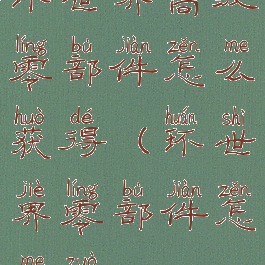 líng bú jiàn zěn me
零部件怎么
huò dé huán shì
获得(环世
jiè líng bú jiàn zěn
界零部件怎
me zuò